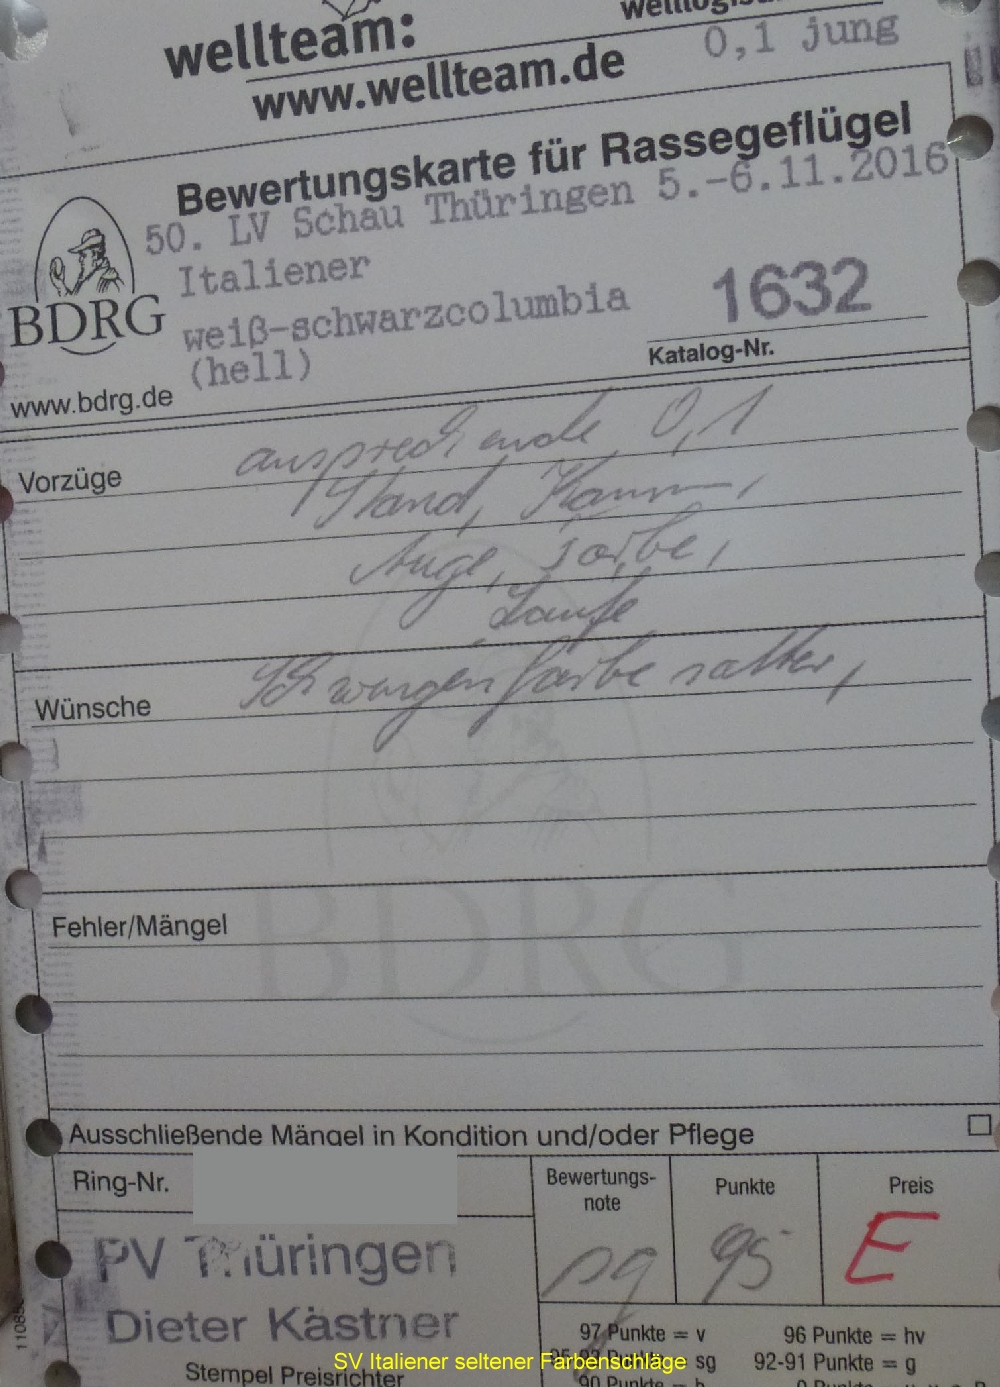 wellteam:
www.wellteam.de
0,1 jung
Bewertungskarte für Rassegeflügel
50. LV Schau Thüringen 5.-6.11.2016
Italiener
weiß-schwarzcolumbia
(hell)
1632
Katalog-Nr.
BDRG
www.bdrg.de
Vorzüge
ansprechende 0,1
Stand, Kamm,
Auge, Farbe,
Läufe
Wünsche
Schwingenfarbe satter,
BDRG
Fehler/Mängel
Ausschließende Mängel in Kondition und/oder Pflege
Ring-Nr.
Bewertungs-
note
Punkte
Preis
sg
95
E
PV Thüringen
Dieter Kästner
Stempel Preisrichter
97 Punkte = v
96 Punkte = hv
sg
92-91 Punkte = g
90 Punkte = b
0 Punkte
SV Italiener seltener Farbenschläge